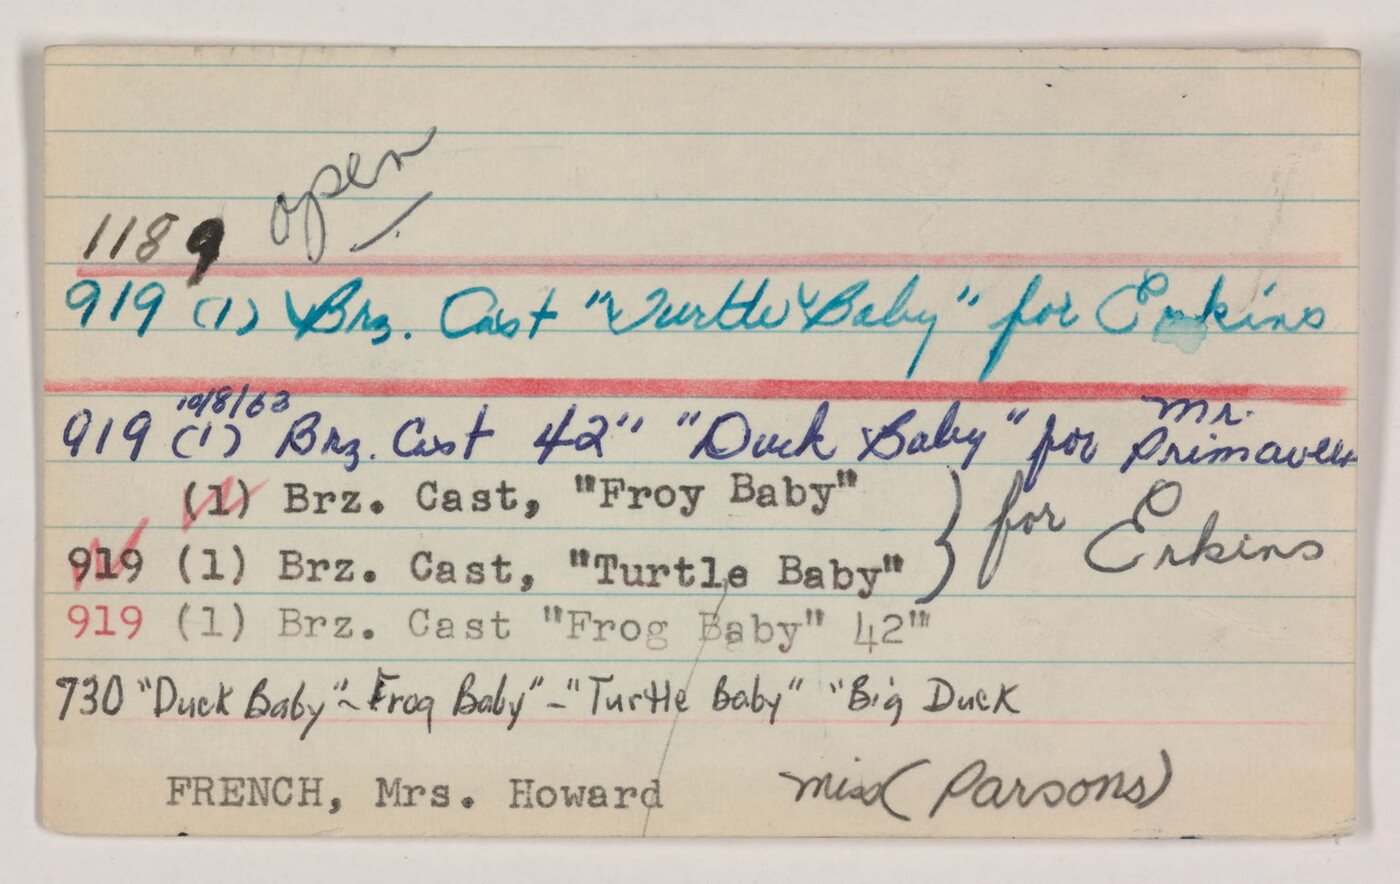 open
1189
919 (1) Brz. Cast "Turtle Baby" for Erkins
10/8/63
919 (1) Brz. Cast 42" "Duck Baby" for Mr. Primavera
(1) Brz. Cast, "Froy Baby"
919 (1) Brz. Cast, "Turtle Baby" } for Erkins
919 (1) Brz. Cast "Frog Baby" 42"'
730 "Duck Baby" ~ Frog Baby" - "Turtle Baby" "Big Duck
FRENCH, Mrs. Howard Miss (Parsons)